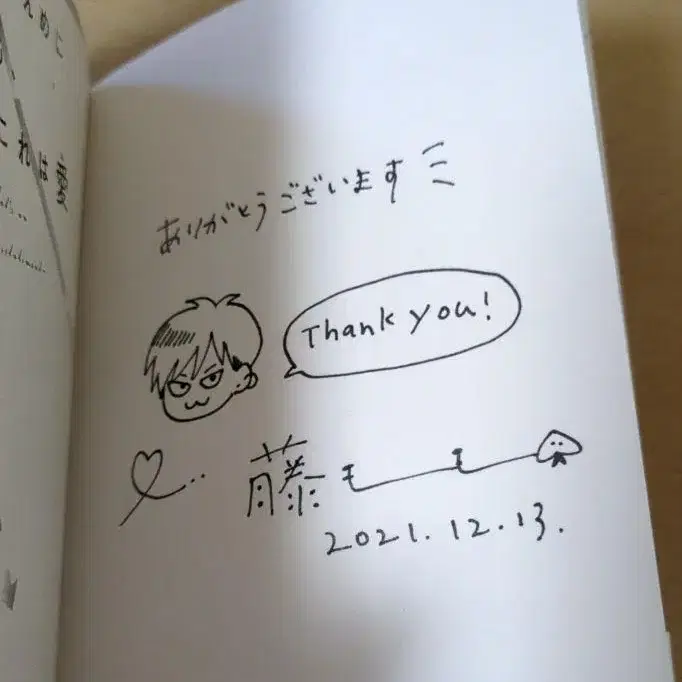 ありがとうございます
Thank you!
藤
2021.12.13.
えめに
これは